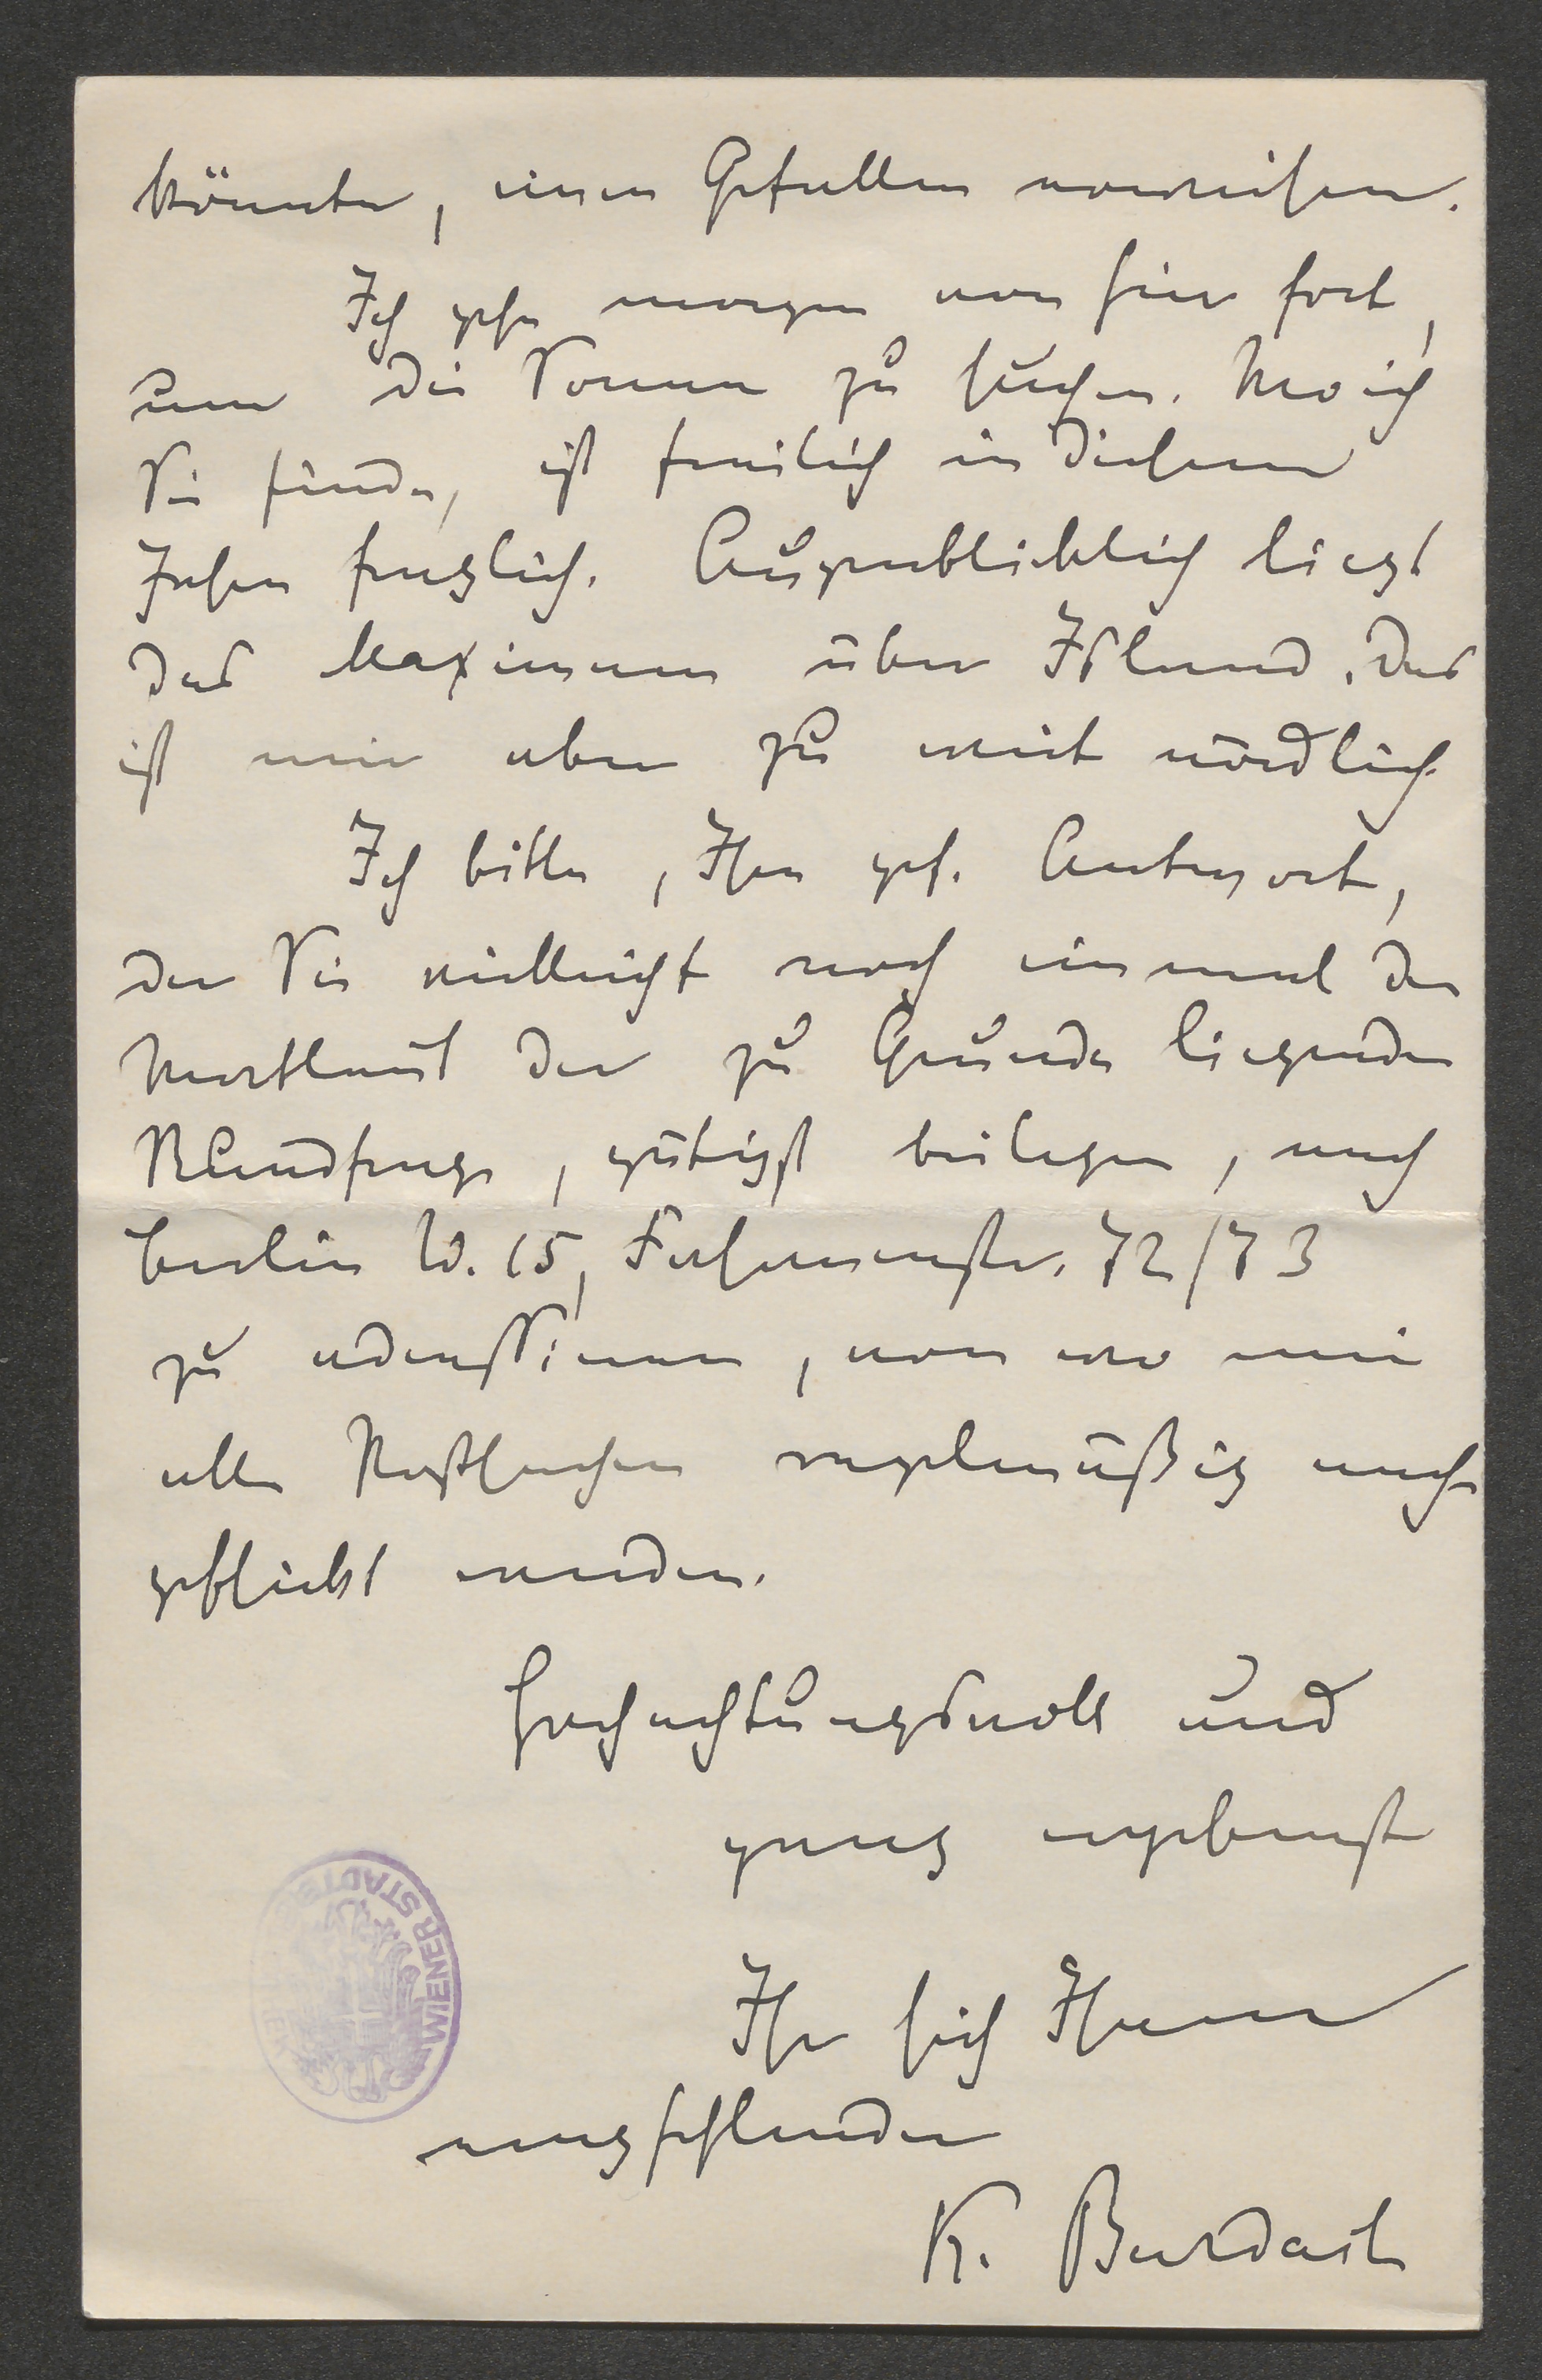 könnte, einen Gefallen erweisen.
Ich gehe morgen von hier fort,
um die Sonne zu suchen. Wo ich
Sie finde, ist freilich in diesem
Jahre fraglich. Augenblicklich liegt
das Maximum über Island. Das
ist mir aber zu weit nördlich.
Ich bitte, Ihre gef. Antwort,
der Sie vielleicht noch einmal den
Wortlaut der zu Grunde liegenden
Rundfrage, gütigst beilegen, nach
Berlin W. 15, Fasanenstr. 72/73
zu adressieren, von wo mir
alle Postsachen regelmäßig nach
geschickt werden.
Hochachtungsvoll und
ganz ergebenst
Ihr sich Ihnen
empfehlender
K. Burdach
WIENER STADTB